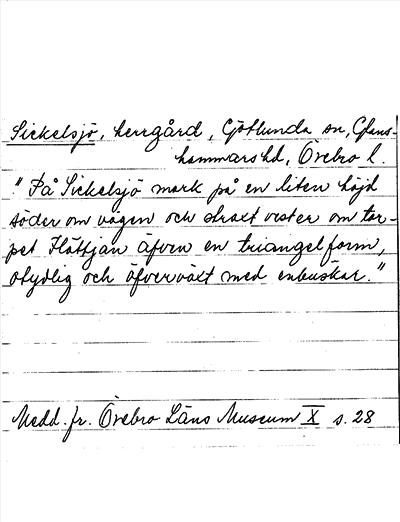 Sickelsjö, herrgård, Götlunda sn, Glans-
hammars hd, Örebro l.
"På Sickelsjö mark på en liten höjd
söder om vägen och straxt vester om tor-
pet Hättjan äfven en triangelform,
otydlig och öfverväxt med enbuskar."
Medd. fr. Örebro Läns Museum X s. 28